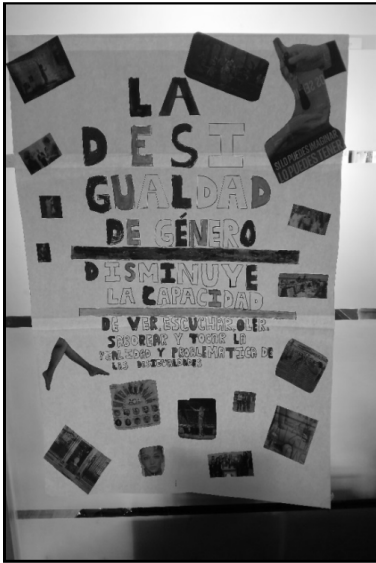 LA
DESI
GUALDAD
DE GÉNERO
DISMINUYE
LA CAPACIDAD
DE VER, ESCUCHAR, OLER,
SABOREAR Y TOCAR LA
REALIDAD Y PROBLEMÁTICA DE
LAS DESIGUALDADES
SI LO PUEDES IMAGINAR
LO PUEDES TENER